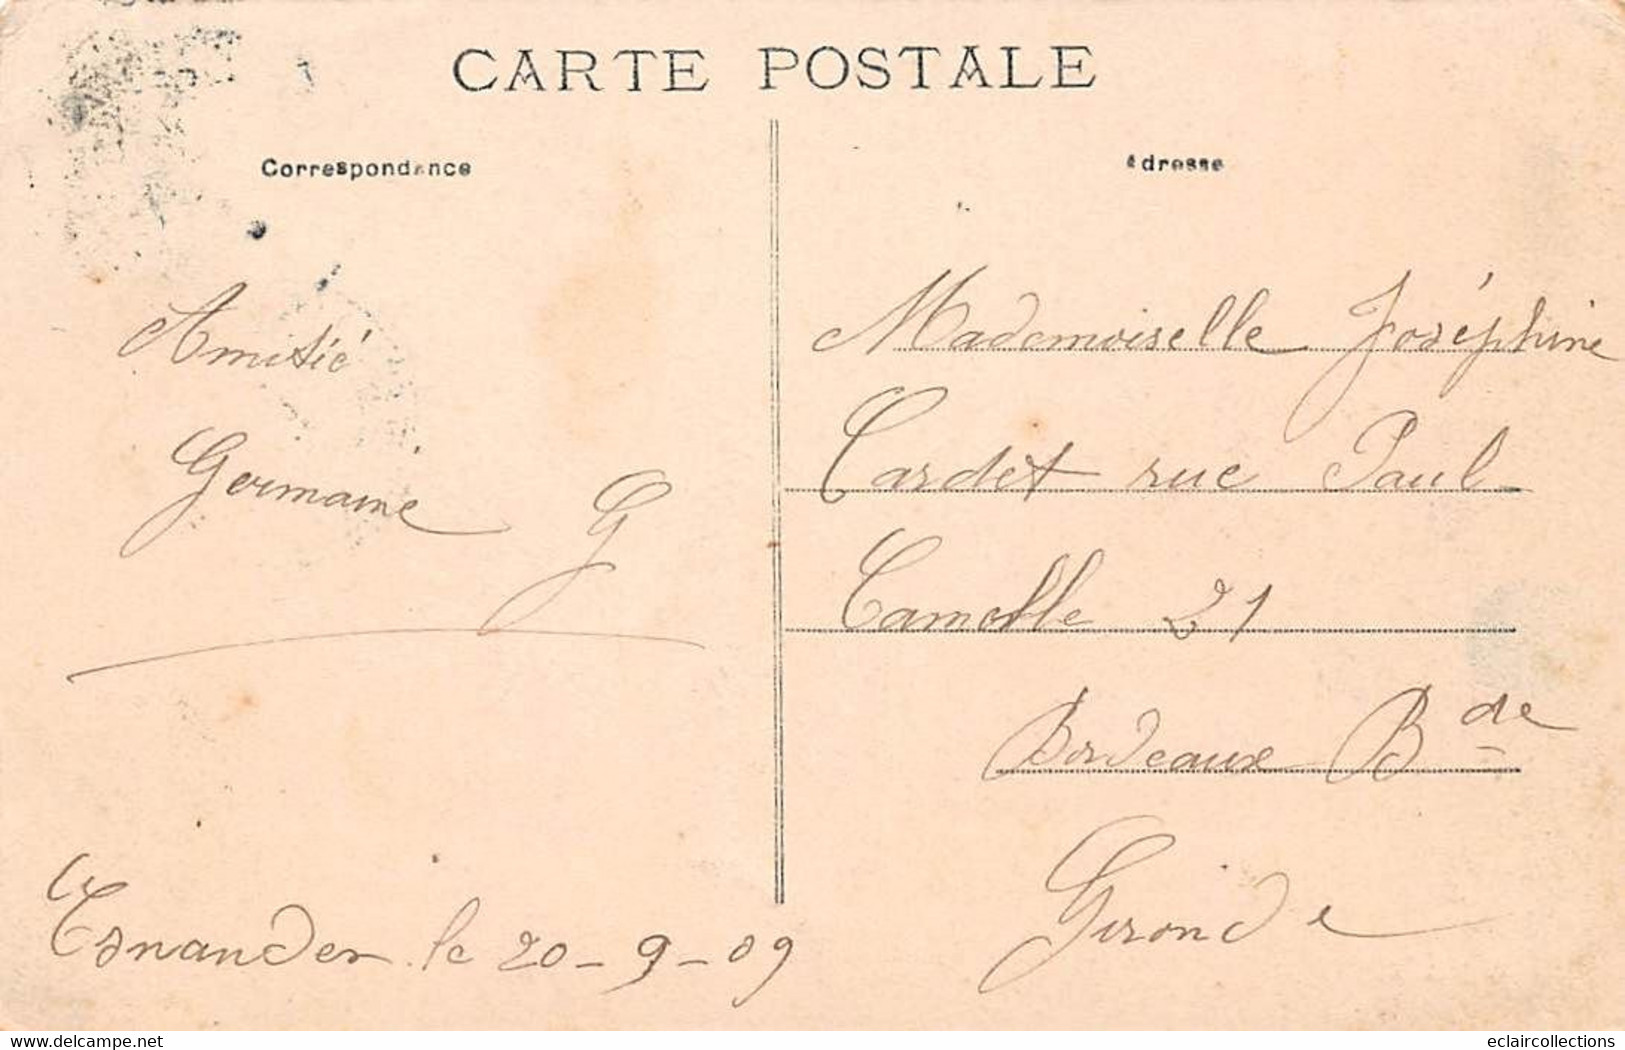 CARTE POSTALE
Correspondance
Adresse
Amitié
Germaine G
Mademoiselle Joséphine
Cardet rue Paul
Camelle 21
Bordeaux Bde
Gironde
le 20-9-09
eclaircollections